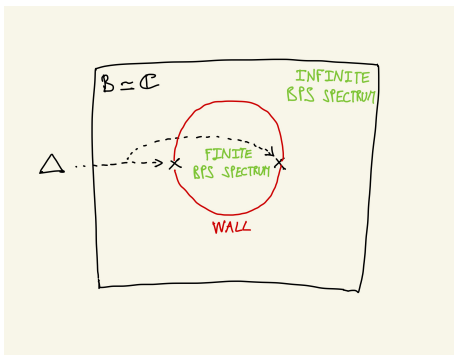 B ≃ ℂ
INFINITE
BPS SPECTRUM
Δ
FINITE
BPS SPECTRUM
WALL